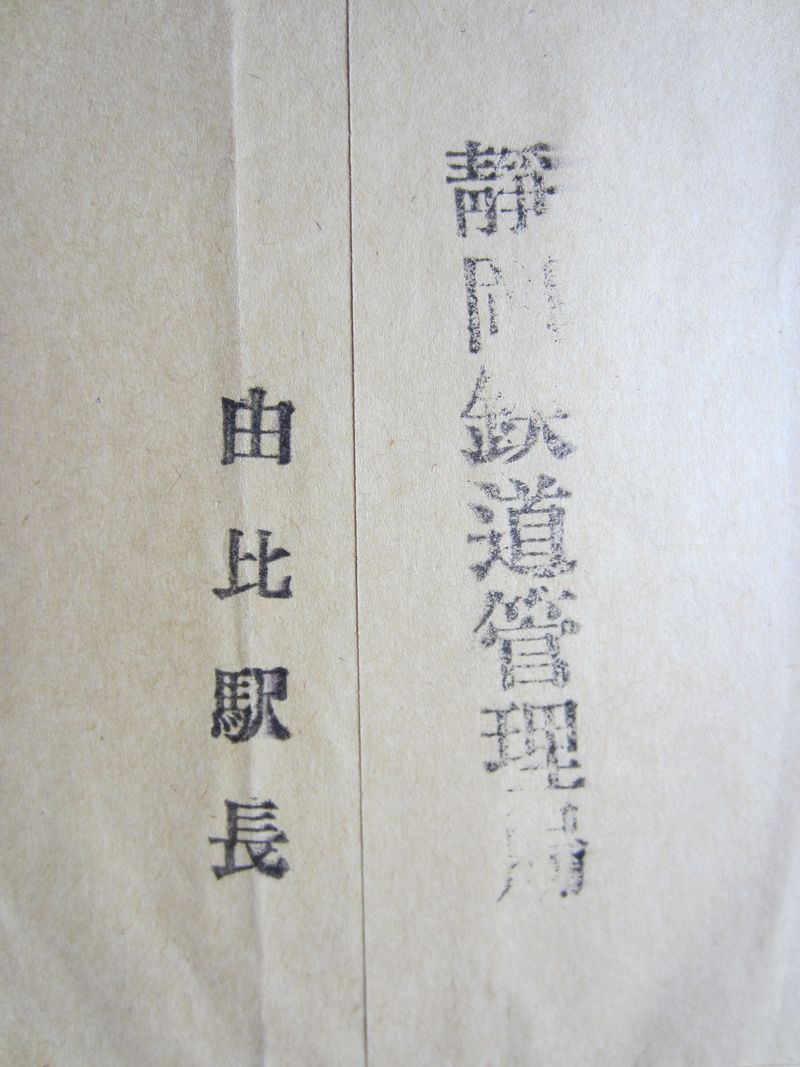 静岡鉄道管理局
由比駅長